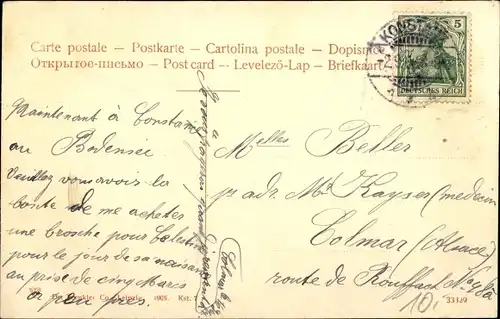 Carte postale — Postkarte — Cartolina postale — Dopisnice
Открытое-письмо — Post card — Levelező-Lap — Briefkaart
KONSTANZ
5
DEUTSCHES REICH
Maintenant à Constanz
au Bodensee
Veuillez vous avoir la
bonté de me acheter
une broche pour
pour le jour de sa naissance
au prise de cinq Marcs
à peu près.
Melles Beller
pr adr. Mr Kayser (medecin
Colmar (Alsace)
route de Rouffach No 98a
10.
Leipzig. 1905.
33389